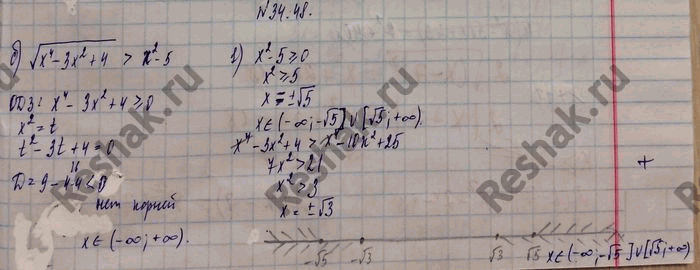 N34.48.
б) √x⁴-3x²+4 > x²-5
ОДЗ: x⁴-3x²+4≥0
x²=t
t²-3t+4=0
D=9-4·4<0
нет корней
x∈(-∞;+∞).
1) x²-5≥0
x²≥5
x=±√5
x∈(-∞;-√5]∪[√5;+∞).
x⁴-3x²+4>x⁴-10x²+25
7x²>21
x²>3
x=±√3
+
-√5 -√3 √3 √5 x∈(-∞;-√5]∪[√5;+∞)
Reshak.ru
Reshak.ru
Reshak.ru